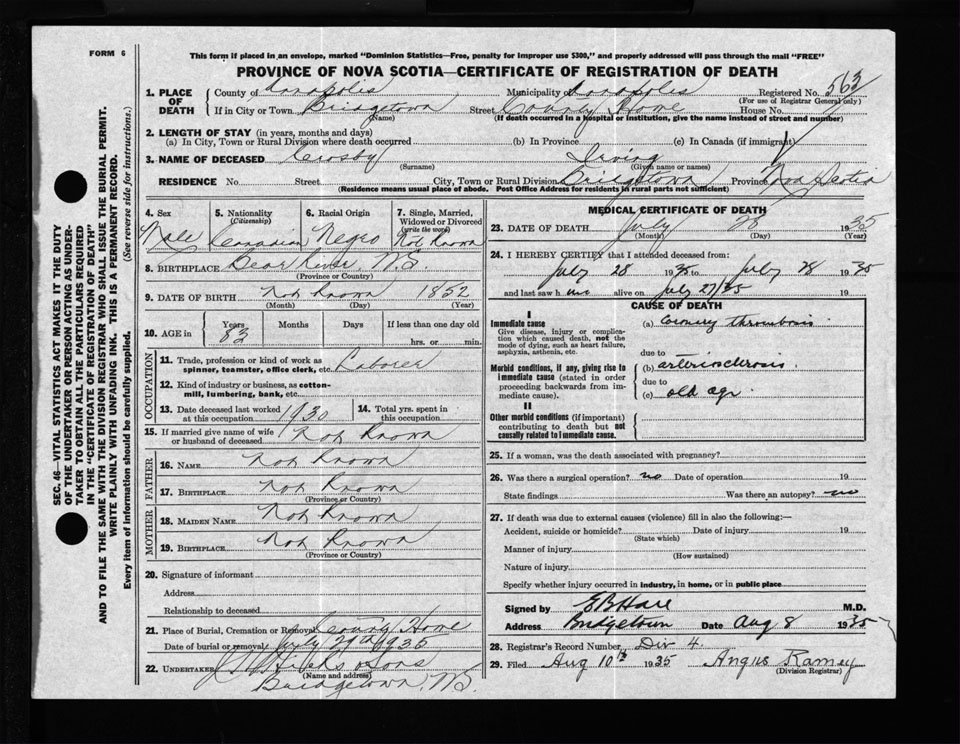 FORM 6
This form if placed in an envelope, marked "Dominion Statistics—Free, penalty for improper use $300," and properly addressed will pass through the mail "FREE"
PROVINCE OF NOVA SCOTIA—CERTIFICATE OF REGISTRATION OF DEATH
SEC. 46—VITAL STATISTICS ACT MAKES IT THE DUTY
OF THE UNDERTAKER OR PERSON ACTING AS UNDER-
TAKER TO OBTAIN ALL THE PARTICULARS REQUIRED
IN THE "CERTIFICATE OF REGISTRATION OF DEATH"
AND TO FILE THE SAME WITH THE DIVISION REGISTRAR WHO SHALL ISSUE THE BURIAL PERMIT.
WRITE PLAINLY WITH UNFADING INK. THIS IS A PERMANENT RECORD.
Every item of information should be carefully supplied. (See reverse side for instructions.)
1. PLACE OF DEATH
County of Annapolis Municipality Annapolis Registered No. 563
(For use of Registrar General only)
If in City or Town Bridgetown Street County Home House No.
(Name) (If death occurred in a hospital or institution, give the name instead of street and number)
2. LENGTH OF STAY (in years, months and days)
(a) In City, Town or Rural Division where death occurred (b) In Province (c) In Canada (if immigrant)
3. NAME OF DECEASED Crosby Irving
(Surname) (Given name or names)
RESIDENCE No. Street City, Town or Rural Division Bridgetown Province Nova Scotia
(Residence means usual place of abode. Post Office Address for residents in rural parts not sufficient)
4. Sex Male
5. Nationality (Citizenship) Canadian
6. Racial Origin Negro
7. Single, Married, Widowed or Divorced (write the word) Not Known
8. BIRTHPLACE Bear River, N.S.
(Province or Country)
9. DATE OF BIRTH Not Known 1852
(Month) (Day) (Year)
10. AGE in Years 83 Months Days If less than one day old
hrs. or min.
OCCUPATION
11. Trade, profession or kind of work as spinner, teamster, office clerk, etc. Laborer
12. Kind of industry or business, as cotton-mill, lumbering, bank, etc.
13. Date deceased last worked at this occupation 1930
14. Total yrs. spent in this occupation
15. If married give name of wife or husband of deceased Not Known
FATHER
16. NAME Not Known
17. BIRTHPLACE Not Known
(Province or Country)
MOTHER
18. MAIDEN NAME Not Known
19. BIRTHPLACE Not Known
(Province or Country)
20. Signature of informant
Address
Relationship to deceased
21. Place of Burial, Cremation or Removal County Home
Date of burial or removal July 29th 1935
22. UNDERTAKER Hicks & Sons
(Name and address)
Bridgetown, N.S.
MEDICAL CERTIFICATE OF DEATH
23. DATE OF DEATH July 28 1935
(Month) (Day) (Year)
24. I HEREBY CERTIFY that I attended deceased from:
July 28 1935 to July 28 1935
and last saw him alive on July 27/35 19
CAUSE OF DEATH
I
Immediate cause
Give disease, injury or complication which caused death, not the mode of dying, such as heart failure, asphyxia, asthenia, etc.
(a) Coronary thrombosis
due to
Morbid conditions, if any, giving rise to immediate cause (stated in order proceeding backwards from immediate cause).
(b) arteriosclerosis.
due to
(c) old age
II
Other morbid conditions (if important) contributing to death but not causally related to immediate cause.
25. If a woman, was the death associated with pregnancy?
26. Was there a surgical operation? no Date of operation 19
State findings Was there an autopsy? no
27. If death was due to external causes (violence) fill in also the following:—
Accident, suicide or homicide? Date of injury 19
(State which)
Manner of injury
(How sustained)
Nature of injury
Specify whether injury occurred in industry, in home, or in public place
Signed by M.D.
Address Bridgetown Date Aug 8 1935
28. Registrar's Record Number Div 4.
29. Filed Aug 10th 1935 Angus Ramey
(Division Registrar)